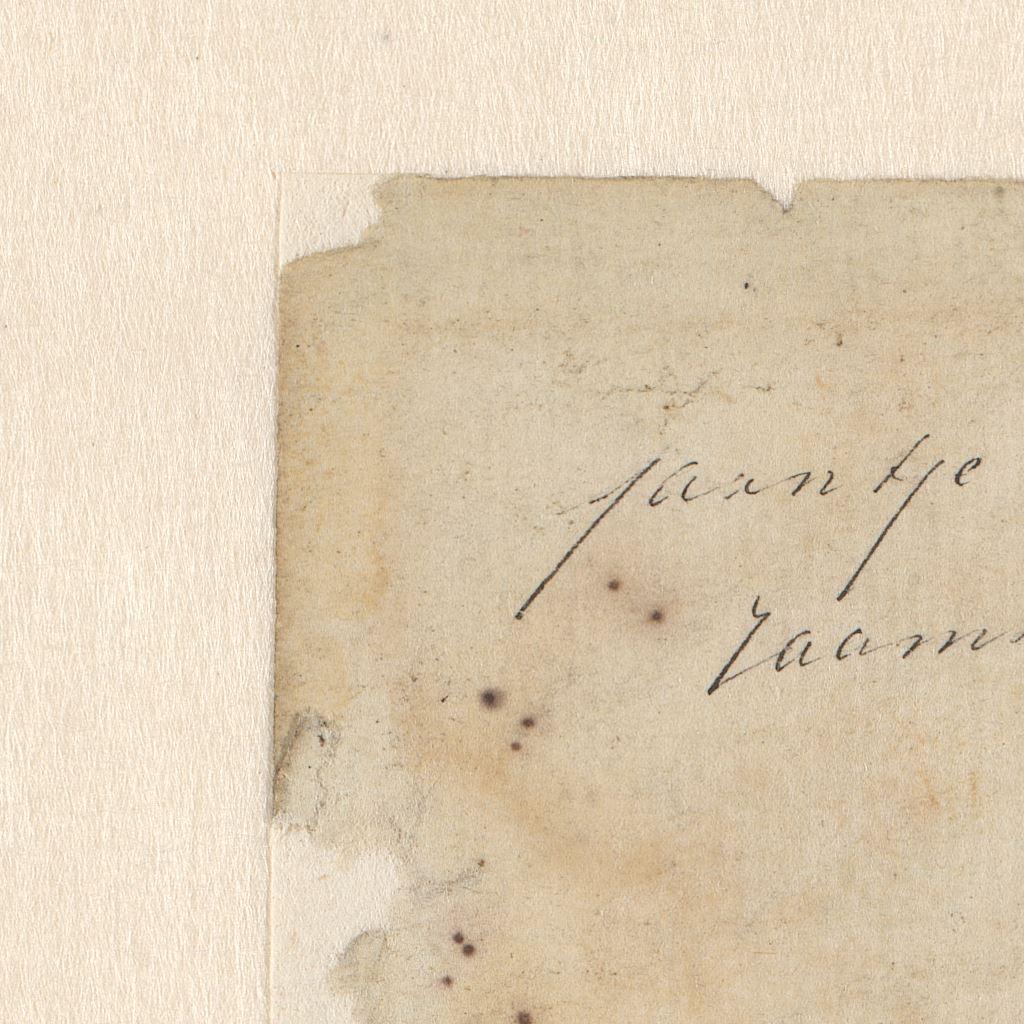 jaantje
zaam